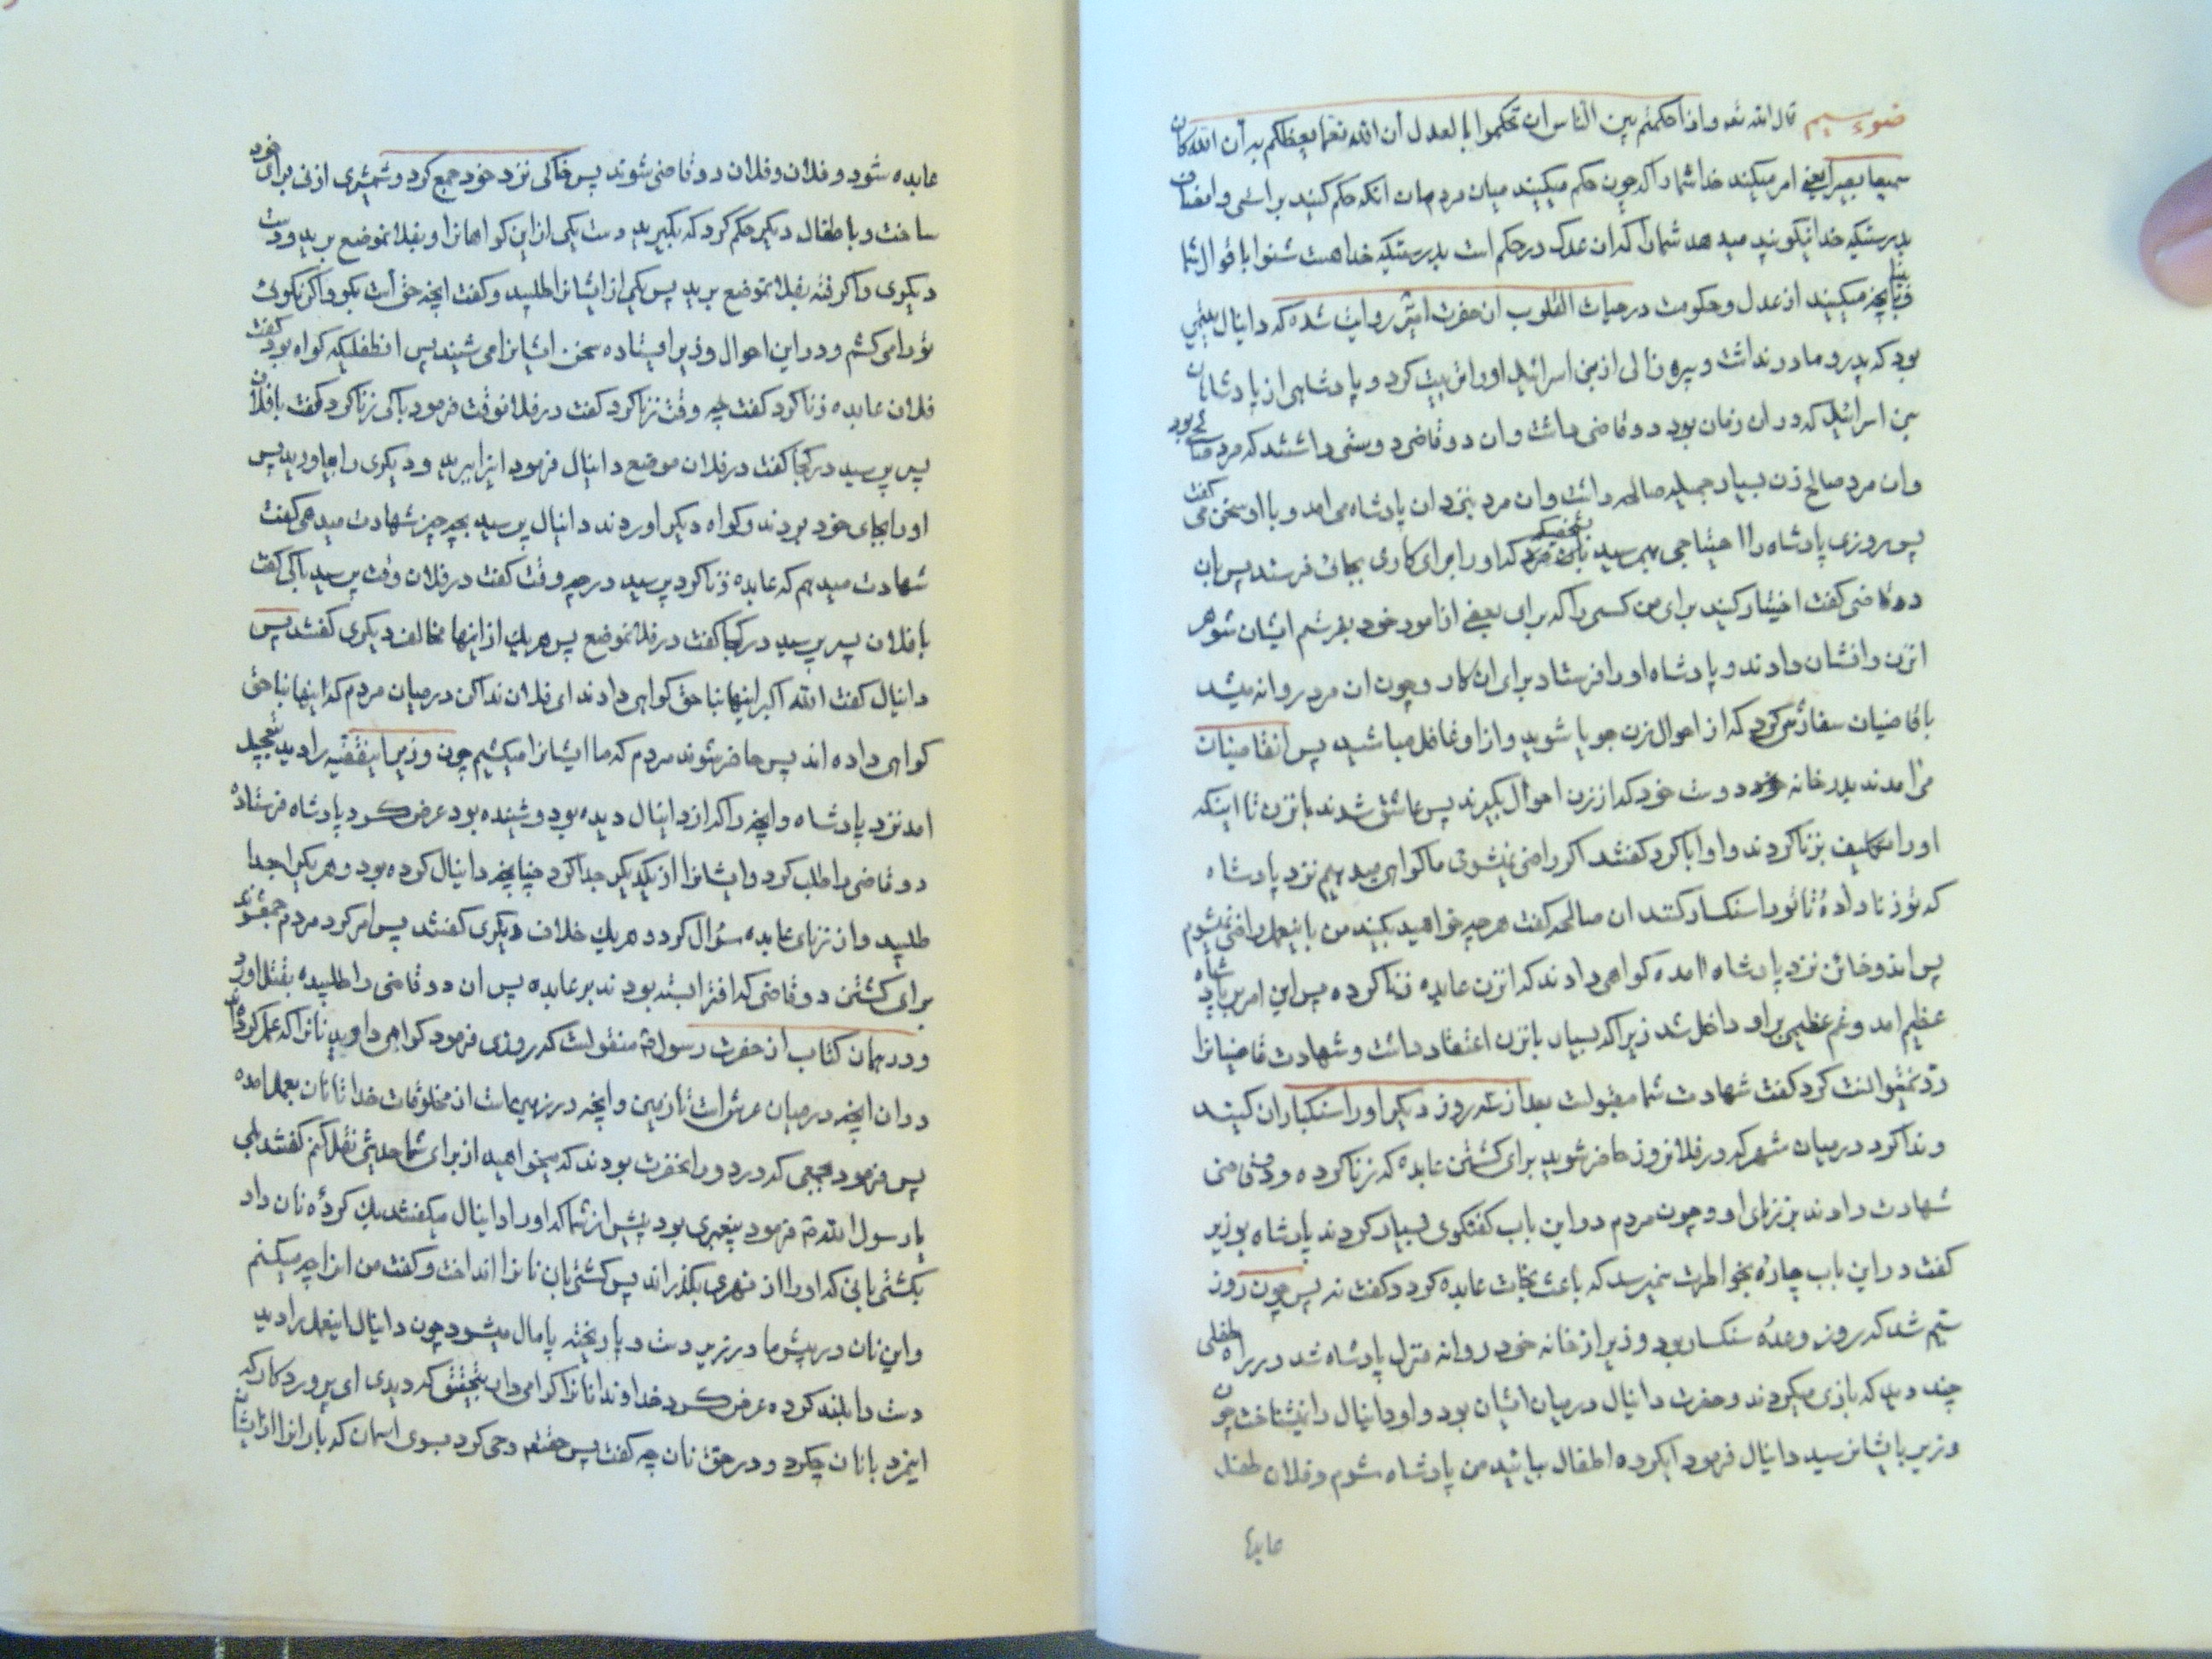 ضوء سیم قال الله تعه و اذا حکمتم بین الناس ان تحکموا بالعدل ان الله نعما یعظکم به ان الله کان
سمیعا بصیرا یعنی امر میکند خدا شما را که چون حکم میکنید میان مردمان انکه حکم کنید براستی و انصاف
بدرستیکه خدا نیکو پند میدهد شما را که ان عدل در حکم است بدرستیکه خدا هست شنوا باقوال شما
و بینا بانچه میکنید از عدل و حکومت در حیات القلوب از حضرت امیر روایت شده که دانیال یتیمی
بود که پدر و مادر نداشت و پیره زالی از بنی اسرائیل او را تربیت کرد و پادشاهی از پادشاهان
بنی اسرائیل که در ان زمان بود دو قاضی داشت و ان دو قاضی دوستی داشتند که مرد صالحی بود
و ان مرد صالح زن بسیار جمیله صالحه داشت و ان مرد بنزد ان پادشاه می امد و با او سخن می کفت
پس روزی پادشاه را احتیاجی بهم رسید بشخصیکه او را برای کاری بجائی فرستد پس بان
دو قاضی کفت اختیار کنید برای من کسی را که برای بعضی از امور خود بفرستم ایشان شوهر
انزن را نشان دادند و پادشاه او را فرستاد برای ان کار و چون ان مرد روانه میشد
با قاضیان سفارش کرد که از احوال زن جویا شوید و از او غافل مباشید پس انقاضیان
می امدند بدر خانه دوست خود که از زن احوال بکیرند پس عاشق شدند بانزن تا اینکه
او را تکلیف بزنا کردند و او ابا کرد کفتند اکر راضی نمیشوی ما کواهی میدهیم نزد پادشاه
که تو زنا داده تا تو را سنکسار کنند ان صالحه کفت هرچه خواهید بکنید من باینعمل راضی نمیشوم
پس اندو خائن نزد پادشاه امده کواهی دادند که انزن عابده زنا کرده پس این امر بر پادشاه
عظیم امد و غم عظیمی بر او داخل شد زیرا که بسیار بانزن اعتقاد داشت و شهادت قاضیانرا
رد نمیتوانست کرد کفت شهادت شما مقبولست بعد از سه روز دیکر او را سنکباران کنید
و ندا کرد در میان شهر که در فلانروز حاضر شوید برای کشتن عابده که زنا کرده و دو قاضی
شهادت دادند بزنای او و چون مردم در این باب کفتکوی بسیار کردند پادشاه بوزیر
کفت در این باب چارهٔ بخواطرت نمیرسد که باعث نجات عابده کردد کفت نه پس چون روز
سیم شد که روز وعدهٔ سنکسار بود وزیر از خانه خود روانه منزل پادشاه شد در راه طفلی
چند دید که بازی میکردند و حضرت دانیال در میان ایشان بود و او دانیال را نمیشناخت چون
وزیر بایشان رسید دانیال فرمود ایکروه اطفال بیائید من پادشاه شوم و فلان طفل
عابده
عابده شود و فلان و فلان دو قاضی شوند پس خاکی نزد خود جمع کرد و شمشیری از نی برای خود
ساخت و باطفال دیکر حکم کرد که بکیرید دست یکی از این کواهانرا و بفلانموضع برید و دست
دیکری را کرفته بفلانموضع برید پس یکی از ایشانرا طلبید و کفت انچه حق است بکو و اکر نکوئی
تو را می کشم و در این احوال وزیر ایستاده سخن ایشانرا می شنید پس انطفلیکه کواه بود کفت
فلان عابده زنا کرد کفت چه وقت زنا کرد کفت در فلانوقت فرمود با کی زنا کرد کفت با فلان
پسر پرسید در کجا کفت در فلان موضع دانیال فرمود اینرا ببرید و دیکری را بیاورید پس
او را بجای خود بردند و کواه دیکر اوردند دانیال پرسید بچه چیز شهادت میدهی کفت
شهادت میدهم که عابده زنا کرد پرسید در چه وقت کفت در فلان وقت پرسید با کی کفت
با فلان پسر پرسید در کجا کفت در فلانموضع پس هریک از اینها مخالف دیکری کفتند پس
دانیال کفت الله اکبر اینها بناحق کواهی دادند ای فلان ندا کن در میان مردم که اینها بناحق
کواهی داده اند پس حاضر شوند مردم که ما ایشانرا میکشیم چون وزیر اینقضیه را دید بتعجیل
امد نزد پادشاه و انچه را که از دانیال دیده بود و شنیده بود عرض کرد پادشاه فرستاده
دو قاضی را طلب کرد و ایشانرا از یکدیکر جدا کرد چنانچه دانیال کرده بود و هر یکرا جدا
طلبید و از زنای عابده سؤال کرد و هریک خلاف دیکری کفتند پس امر کرد مردم جمع شوند
برای کشتن دو قاضی که افترا بسته بودند بر عابده پس ان دو قاضی را طلبیده بقتل اورد
و در همان کتاب از حضرت رسول ص منقولست که روزی فرمود کرامی دارید نانرا که عمل کرده اند
در ان انچه در میان عرش است تا زمین و انچه در زمین است از مخلوقات خدا تا نان بعمل امده
پس فرمود بجمعی که در دور انحضرت بودند که میخواهید از برای شما حدیثی نقل کنم کفتند بلی
یا رسول الله ص فرمود پیغمبری بود پیش از شما که او را دانیال میکفتند یک کردهٔ نان داد
بکشتی بانی که او را از نهری بکذراند پس کشتی بان نانرا انداخت و کفت من انرا چه میکنم
و این نان در پیش ما در زیر دست و پا ریخته پامال میشود چون دانیال اینعمل را دید
دست را بلند کرده عرض کرد خداوندا نانرا کرامی دار بتحقیق که دیدی ای پروردکار که
اینمرد با نان چکرد و در حق نان چه کفت پس حقتعه وحی کرد بسوی اسمان که بارانرا از ایشان